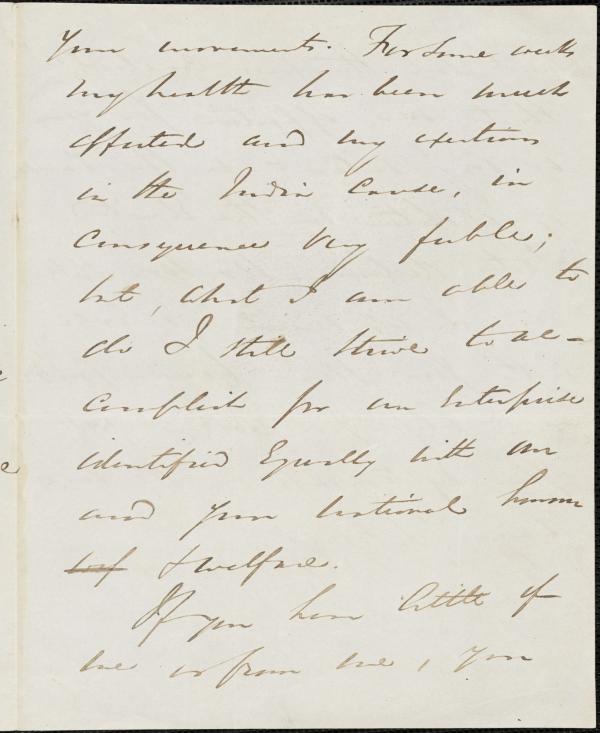 your movements. For some weeks
my health has been much
affected and my exertions
in the India Cause, in
consequence very feeble;
but, what I am able to
do I still strive to ac-
complish for an enterprise
identified equally with our
and your national honour
wel & welfare.
If you hear little of
me or from me, you